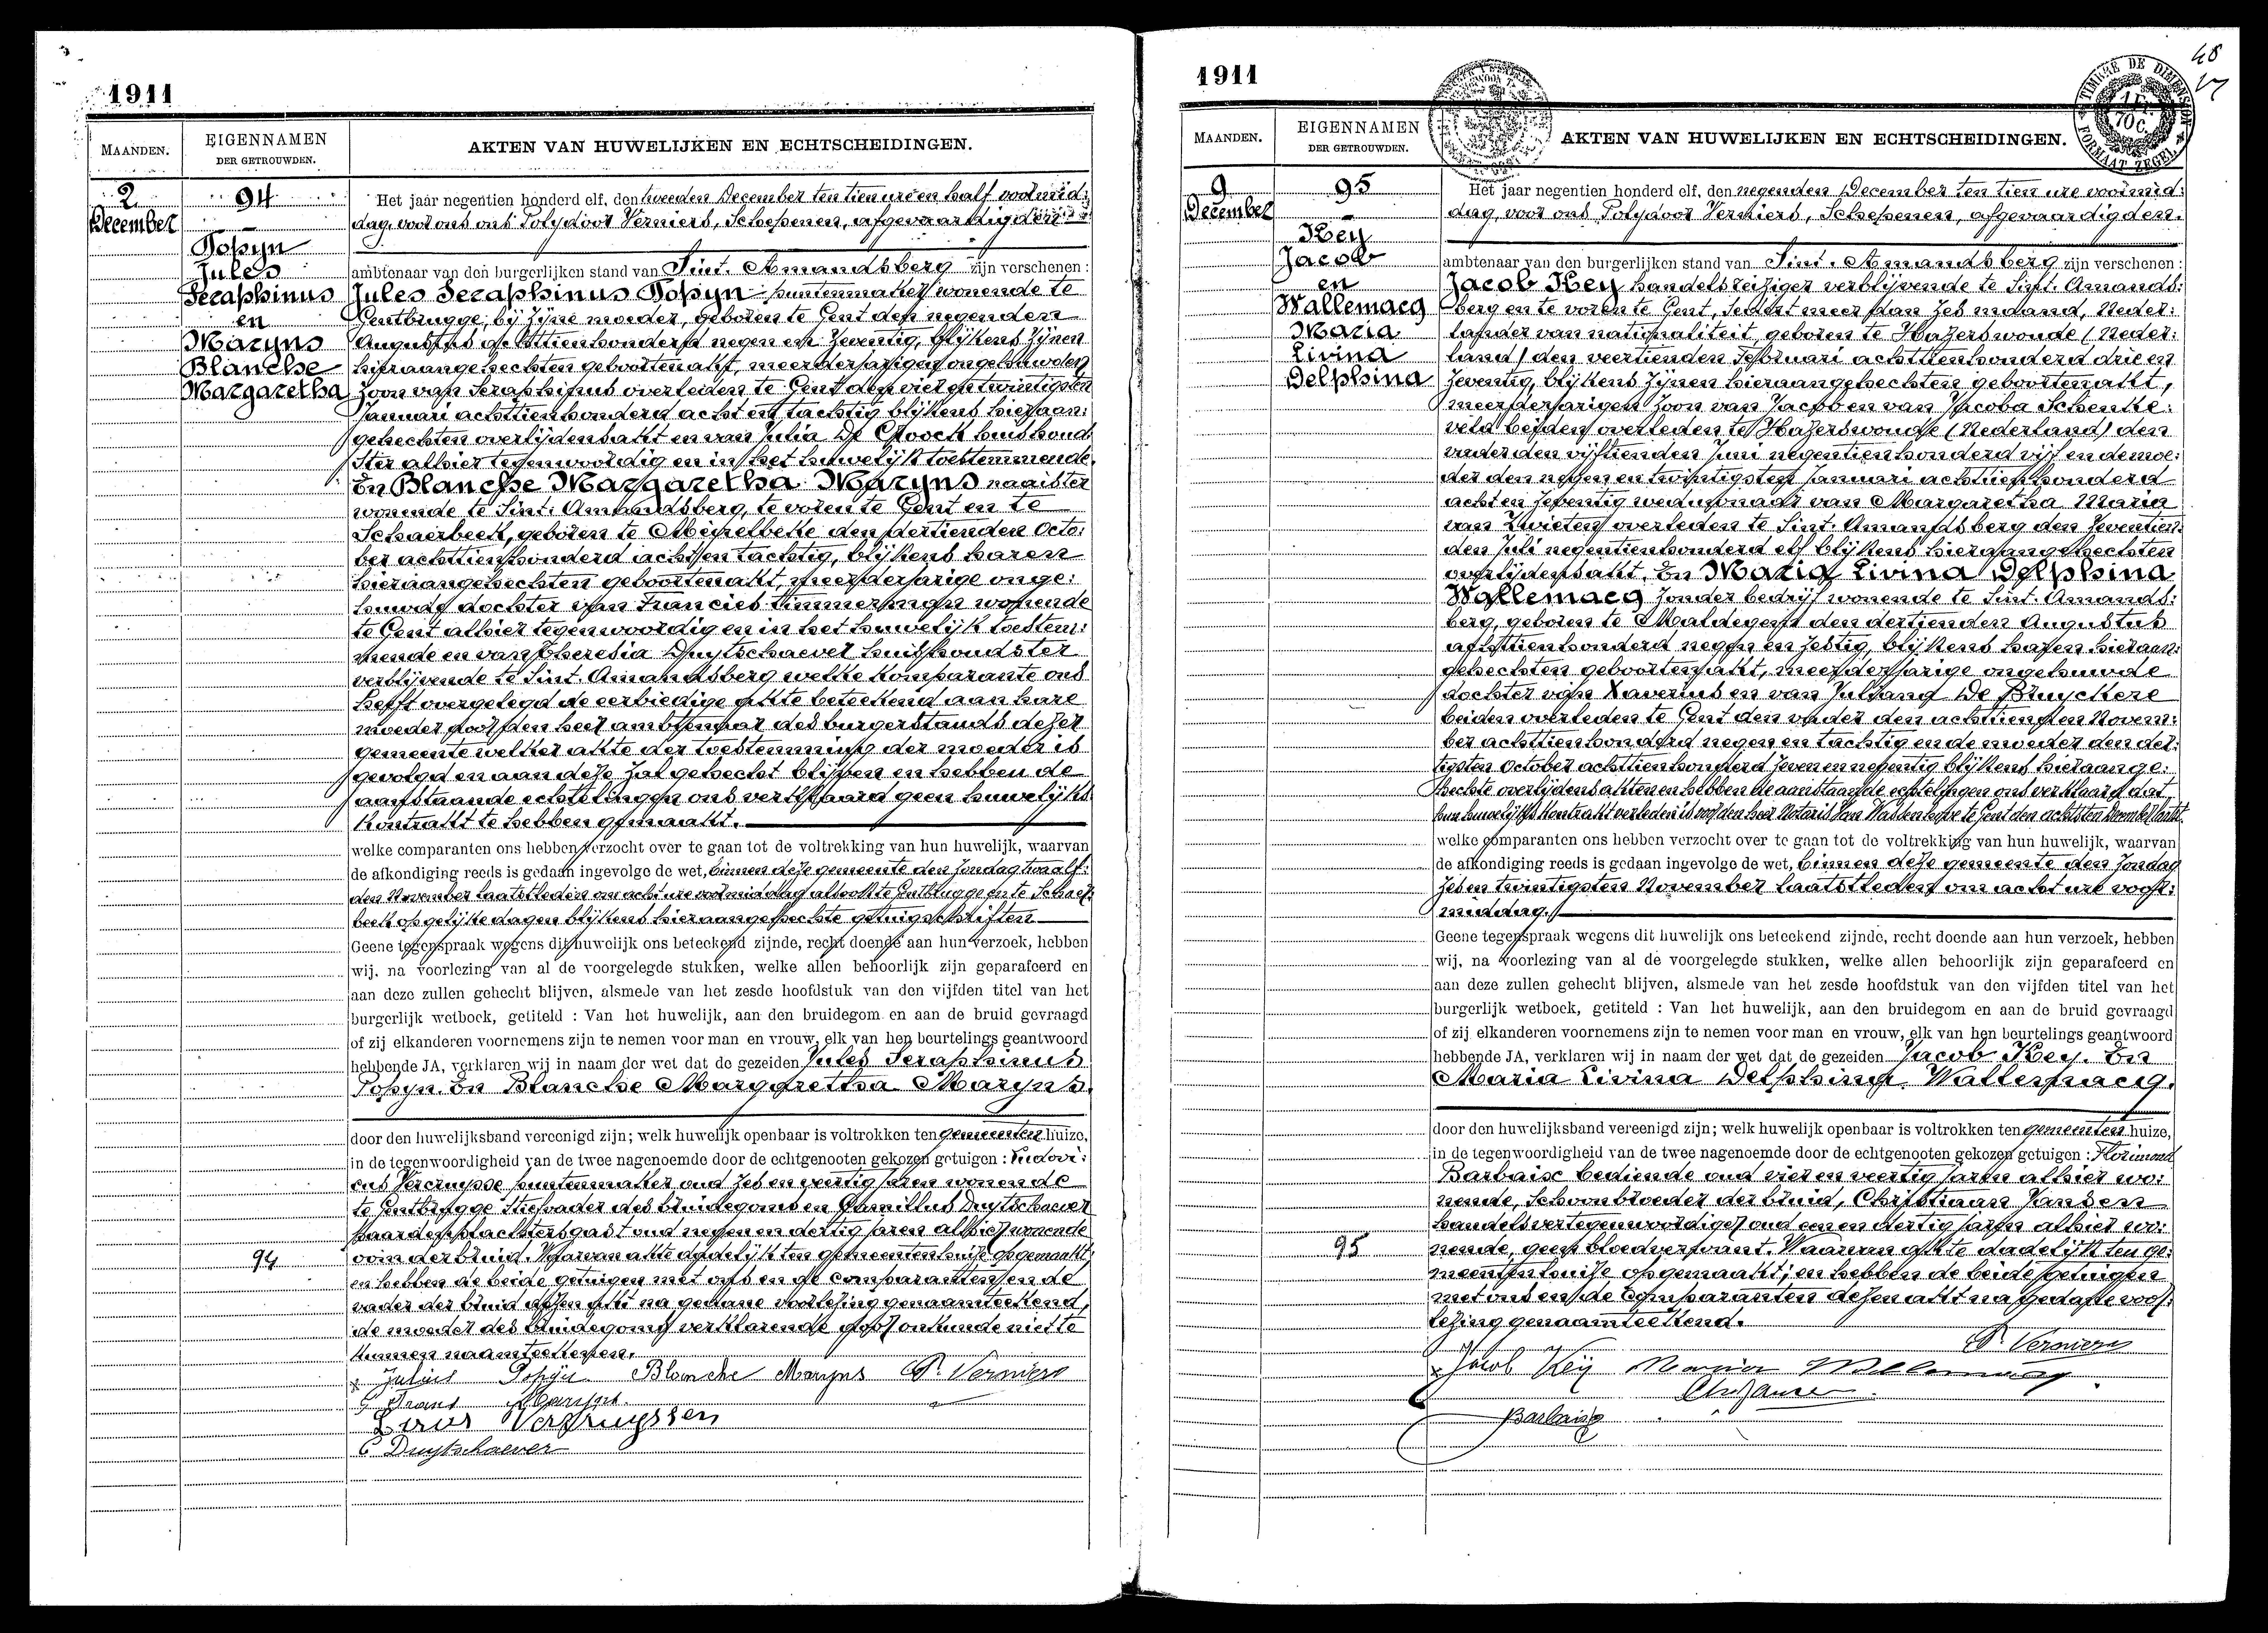 1911
MAANDEN.
EIGENNAMEN
DER GETROUWDEN.
AKTEN VAN HUWELIJKEN EN ECHTSCHEIDINGEN.
2
December
94
Popyn
Jules
Seraphinus
en
Maryns
Blanche
Margaretha
Het jaar negentien honderd elf, den tweeden December ten tien ure en half voormid:
dag, voor ons ons Polydoor Verniers, Schepenen, afgevaardigden
ambtenaar van den burgerlijken stand van Sint. Amandsberg zijn verschenen:
Jules Seraphinus Popyn puntenmaker wonende te
Gentbrugge, bij zijne moeder, geboren te Gent den negenden
Augustus achttienhonderd negen en zeventig, blijkens zijnen
hieraangehechten geboortenakt, meerderjarigen ongehuwden
zoon van Seraphinus overleden te Gent den vier en twintigsten
Januari achttienhonderd acht en tachtig blijkens hieraan:
gehechten overlijdensakt en van Julia De Coock huishoud:
ster alhier tegenwoordig en in het huwelijk toestemmende.
En Blanche Margaretha Maryns naaister
wonende te Sint. Amandsberg, te voren te Gent en te
Schaerbeek, geboren te Meirelbeke den dertienden Octo:
ber achttienhonderd acht en tachtig, blijkens haren
hieraangehechten geboortenakt, meerderjarige onge:
huwde dochter van Francies timmerman wonende
te Gent alhier tegenwoordig en in het huwelijk toestem:
mende en van Theresia Duytschaever huishoudster
verblijvende te Sint. Amandsberg welke komparante ons
heeft overgelegd de eerbiedige akte beteekend aan hare
moeder door den heer ambtenaar des burgerstands dezer
gemeente welker akte der toestemming der moeder is
gevolgd en aan deze zal gehecht blijven en hebben de
aanstaande echtelingen ons verklaard geen huwelijks
kontrakt te hebben gemaakt.
welke comparanten ons hebben verzocht over te gaan tot de voltrekking van hun huwelijk, waarvan
de afkondiging reeds is gedaan ingevolge de wet, binnen deze gemeente den zondag twaalf:
den November laatstleden om acht ure voormiddag alsook te Gentbrugge en te Schaer:
beek op gelijke dagen blijkens hieraangehechte getuigschriften
Geene tegenspraak wegens dit huwelijk ons beteekend zijnde, recht doende aan hun verzoek, hebben
wij, na voorlezing van al de voorgelegde stukken, welke allen behoorlijk zijn geparafeerd en
aan deze zullen gehecht blijven, alsmede van het zesde hoofdstuk van den vijfden titel van het
burgerlijk wetboek, getiteld : Van het huwelijk, aan den bruidegom en aan de bruid gevraagd
of zij elkanderen voornemens zijn te nemen voor man en vrouw, elk van hen beurtelings geantwoord
hebbende JA, verklaren wij in naam der wet dat de gezeiden Jules Seraphinus
Popyn. En Blanche Margaretha Maryns.
door den huwelijksband vereenigd zijn; welk huwelijk openbaar is voltrokken ten gemeenten huize,
in de tegenwoordigheid van de twee nagenoemde door de echtgenooten gekozen getuigen : Ludovi:
cus Vercruysse puntenmaker oud zes en veertig jaren wonende
te Gentbrugge stiefvader des bruidegoms en Camillus Duytschaever
paardenslachtersgast oud negen en dertig jaren alhier wonende
oom der bruid. Waarvan akte dadelijk ten gemeentenhuize opgemaakt,
en hebben de beide getuigen met ons en de comparanten en de
vader der bruid dezen akt na gedane voorlezing genaamteekend,
de moeder des bruidegoms verklarende door onkunde niet te
kunnen naamteekenen.
94
Julius Popyn Blanche Maryns P. Verniers
Frans Maryns
Louis Vercruyssen
C Duytschaever
48
1911
TIMBRE DE DIMENSION
FORMAAT ZEGEL
MAANDEN.
EIGENNAMEN
DER GETROUWDEN.
AKTEN VAN HUWELIJKEN EN ECHTSCHEIDINGEN.
9
December
95
Key
Jacob
en
Wallemacq
Maria
Livina
Delphina
Het jaar negentien honderd elf, den negenden December ten tien ure voormid:
dag, voor ons Polydoor Verniers, Schepenen, afgevaardigden.
ambtenaar van den burgerlijken stand van Sint. Amandsberg zijn verschenen:
Jacob Key handelsreiziger verblijvende te Sint. Amands:
berg en te voren te Gent, sedert meer dan zes maand, Neder:
lander van nationaliteit, geboren te Hazerswoude (Neder:
land) den veertienden Februari achttienhonderd drie en
zeventig, blijkens zijnen hieraangehechten geboortenakt,
meerderjarigen zoon van Jacob en van Jacoba Schenke:
veld beiden overleden te Hazerswoude (Nederland) den
vader den vijftienden Juni negentienhonderd vijf en de moe:
der den negen en twintigsten Januari achttienhonderd
acht en zeventig weduwnaar van Margaretha Maria
van Zwieten overleden te Sint. Amandsberg den zeventien:
den Juli negentienhonderd elf blijkens hieraangehechten
overlijdensakt. En Maria Livina Delphina
Wallemacq zonder bedrijf wonende te Sint. Amands:
berg, geboren te Maldegem den dertienden Augustus
achttienhonderd negen en zestig, blijkens haren hieraan:
gehechten geboortenakt, meerderjarige ongehuwde
dochter van Xaverius en van Juliana De Bruyckere
beiden overleden te Gent den vader den achttienden Novem:
ber achttienhonderd negen en tachtig en de moeder den der:
tigsten October achttienhonderd zeven en negentig blijkens hieraange:
hechte overlijdensakten en hebben de aanstaande echtelingen ons verklaard dat
hun huwelijkskontrakt verleden is voor den heer Notaris Van Wassenhove te Gent den achtsten December laatst
welke comparanten ons hebben verzocht over te gaan tot de voltrekking van hun huwelijk, waarvan
de afkondiging reeds is gedaan ingevolge de wet, binnen deze gemeente den zondag
zes en twintigsten November laatstleden om acht ure voor:
middag.
Geene tegenspraak wegens dit huwelijk ons beteekend zijnde, recht doende aan hun verzoek, hebben
wij, na voorlezing van al de voorgelegde stukken, welke allen behoorlijk zijn geparafeerd en
aan deze zullen gehecht blijven, alsmede van het zesde hoofdstuk van den vijfden titel van het
burgerlijk wetboek, getiteld : Van het huwelijk, aan den bruidegom en aan de bruid gevraagd
of zij elkanderen voornemens zijn te nemen voor man en vrouw, elk van hen beurtelings geantwoord
hebbende JA, verklaren wij in naam der wet dat de gezeiden Jacob Key. En
Maria Livina Delphina Wallemacq.
door den huwelijksband vereenigd zijn; welk huwelijk openbaar is voltrokken ten gemeenten huize,
in de tegenwoordigheid van de twee nagenoemde door de echtgenooten gekozen getuigen : Florimond
Barbaix bediende oud vier en veertig jaren alhier wo:
nende, schoonbroeder der bruid, Christiaan Jansen
handelsvertegenwoordiger oud een en dertig jaren alhier wo:
nende, geen bloedverwant. Waarvan akte dadelijk ten ge:
meentenhuize opgemaakt; en hebben de beide getuigen
met ons en de Comparanten dezen akt na gedane voor:
lezing genaamteekend.
95
P. Verniers
Jacob Key Maria Wallemacq
Chr Jansen
Barbaix